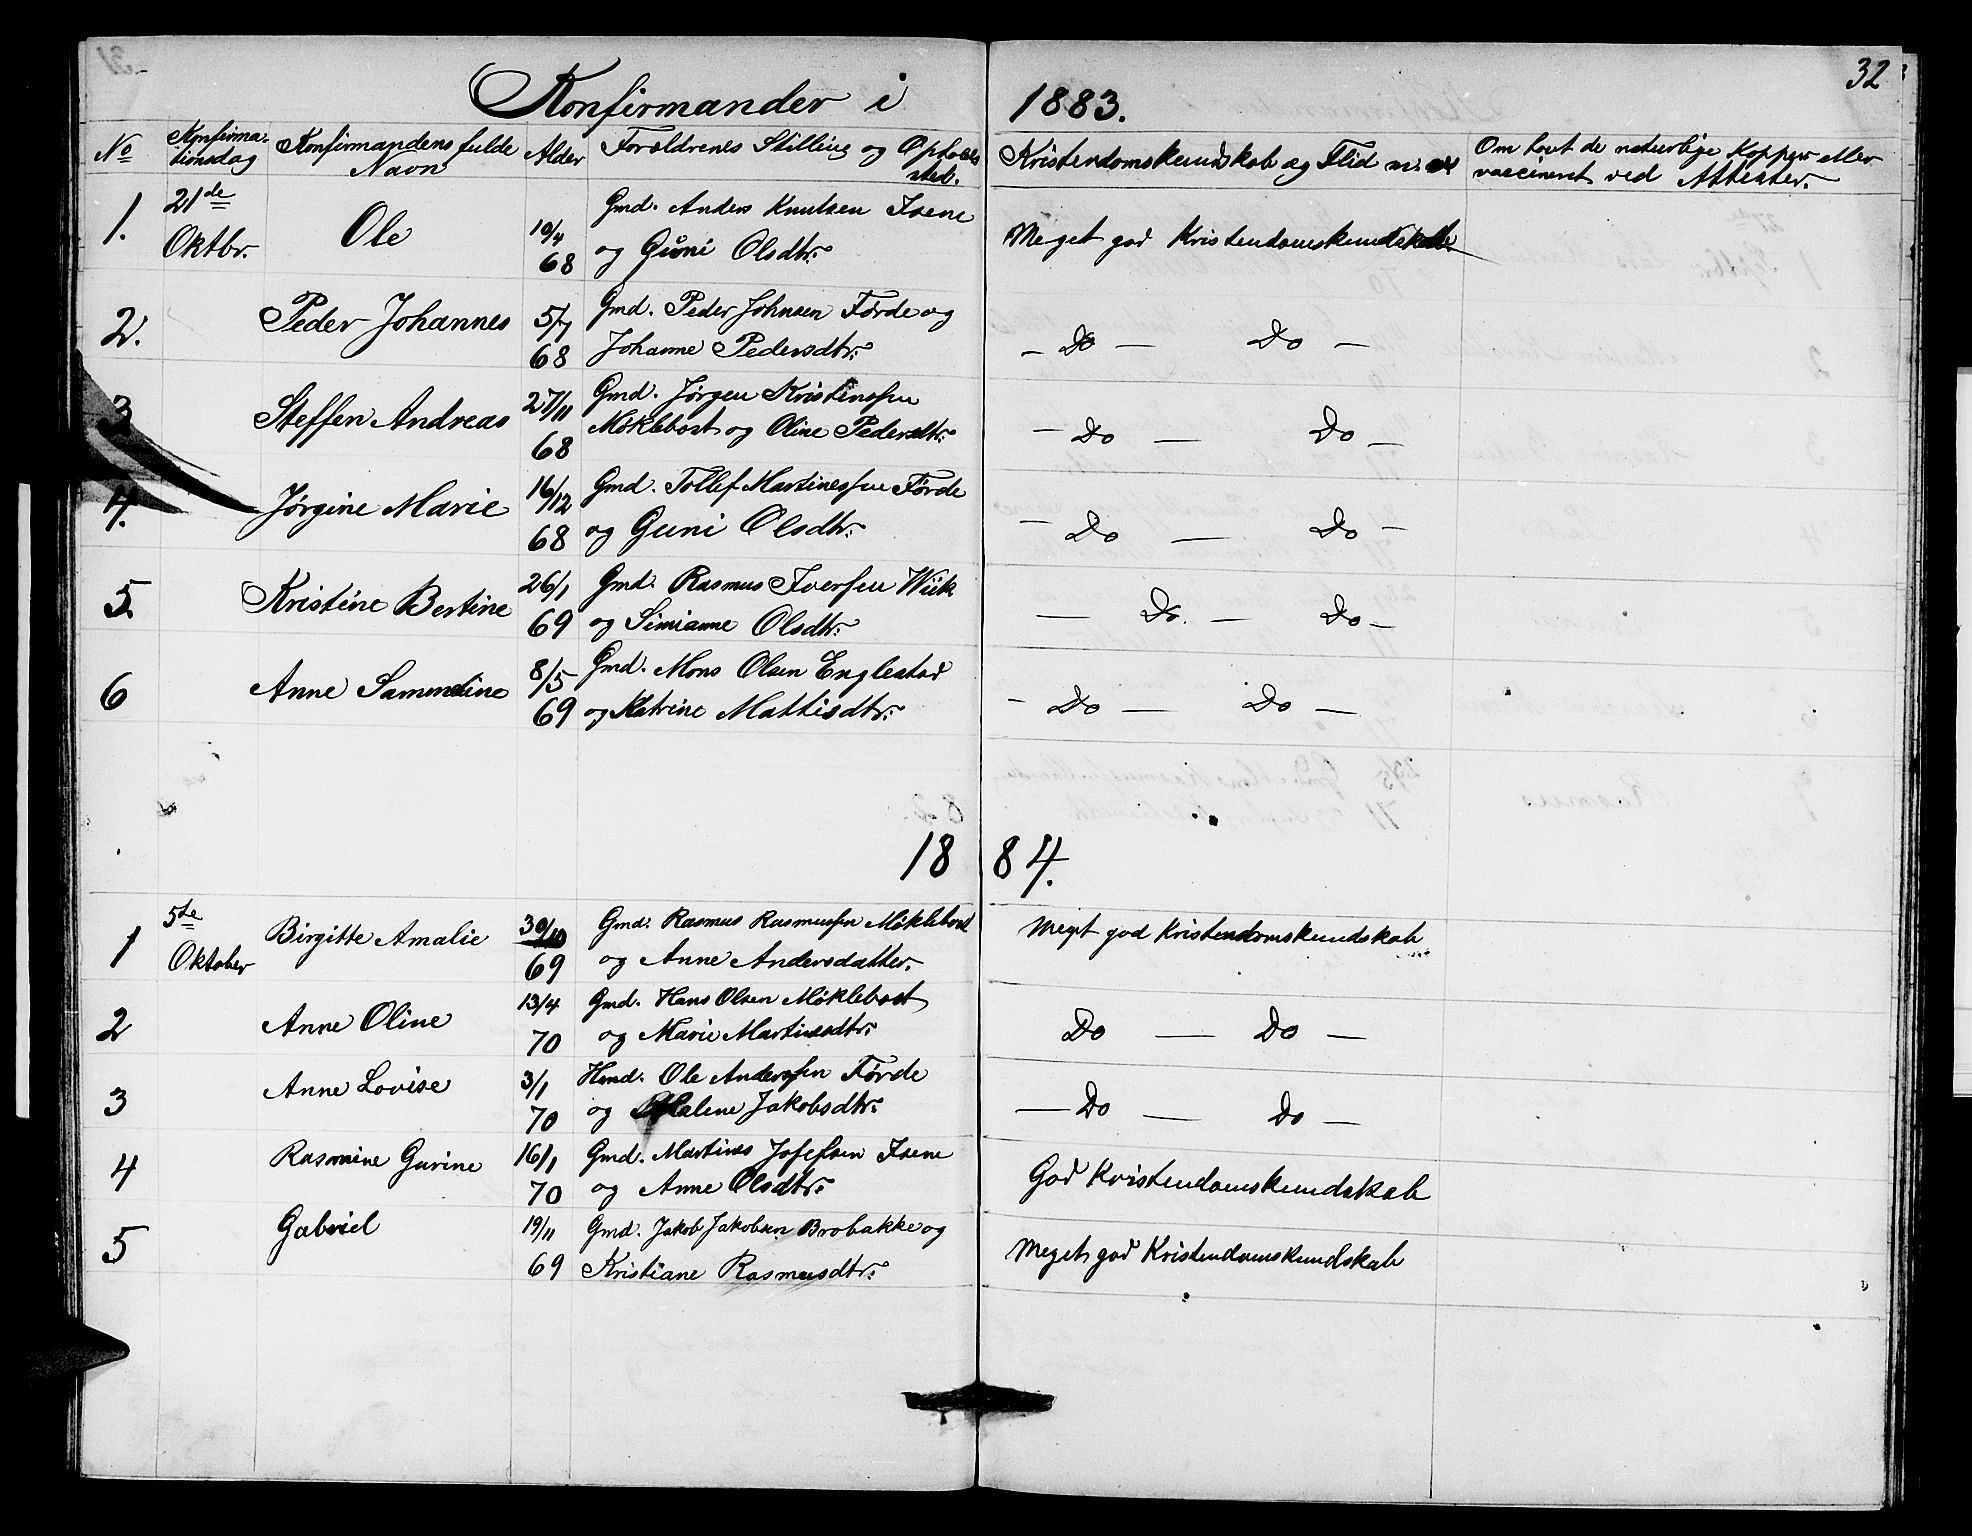 32
Konfirmander i 1883.
No Konfirmationsdag Konfirmandens fulde Navn Alder Forældrenes Stilling og Opholdssted. Kristendomskundskab og Flid m. Om havt de naturlige Kopper eller vaccineret ved Attester.
1. 21de Oktbr. Ole 10/4 68 Gmd. Anders Knutsen Isene og Guni Olsdtr: Meget god Kristendomskundskab
2. Peder Johannes 5/7 68 Gmd. Peder Johnsen Førde og Johanne Pedersdtr: – Do – Do –
3 Steffen Andreas 27/11 68 Gmd. Jørgen Kristensen Møklebost og Oline Pedersdtr: – Do – Do –
4. Jørgine Marie 16/12 68 Gmd. Tollef Martinessen Førde og Guni Olsdtr: – Do – Do –
5. Kristine Bertine 26/1 69 Gmd. Rasmus Iversen Wiik og Simianne Olsdtr: – Do. – Do –
6 Anne Sammeline 8/5 69 Gmd. Mons Olsen Englestad og Katrine Mattisdtr: – Do – Do –
1884.
1 5te Oktober Birgitte Amalie 30/10 69 Gmd. Rasmus Rasmussen Møklebost og Anne Andersdatter. Meget god Kristendomskundskab
2 Anne Oline 13/4 70 Gmd. Hans Olsen Møklebost og Marie Martinesdtr: Do – Do –
3 Anne Lovise 3/1 70 Hmd. Ole Anderssen Førde og Malene Jakobsdtr: – Do – Do –
4 Rasmine Gurine 16/1 70 Gmd. Martines Josefsen Isene og Anne Olsdtr: God Kristendomskundskab
5 Gabriel 19/11 69 Gmd. Jakob Jakobsen Brobakke og Kristiane Rasmusdtr: Meget god Kristendomskundskab